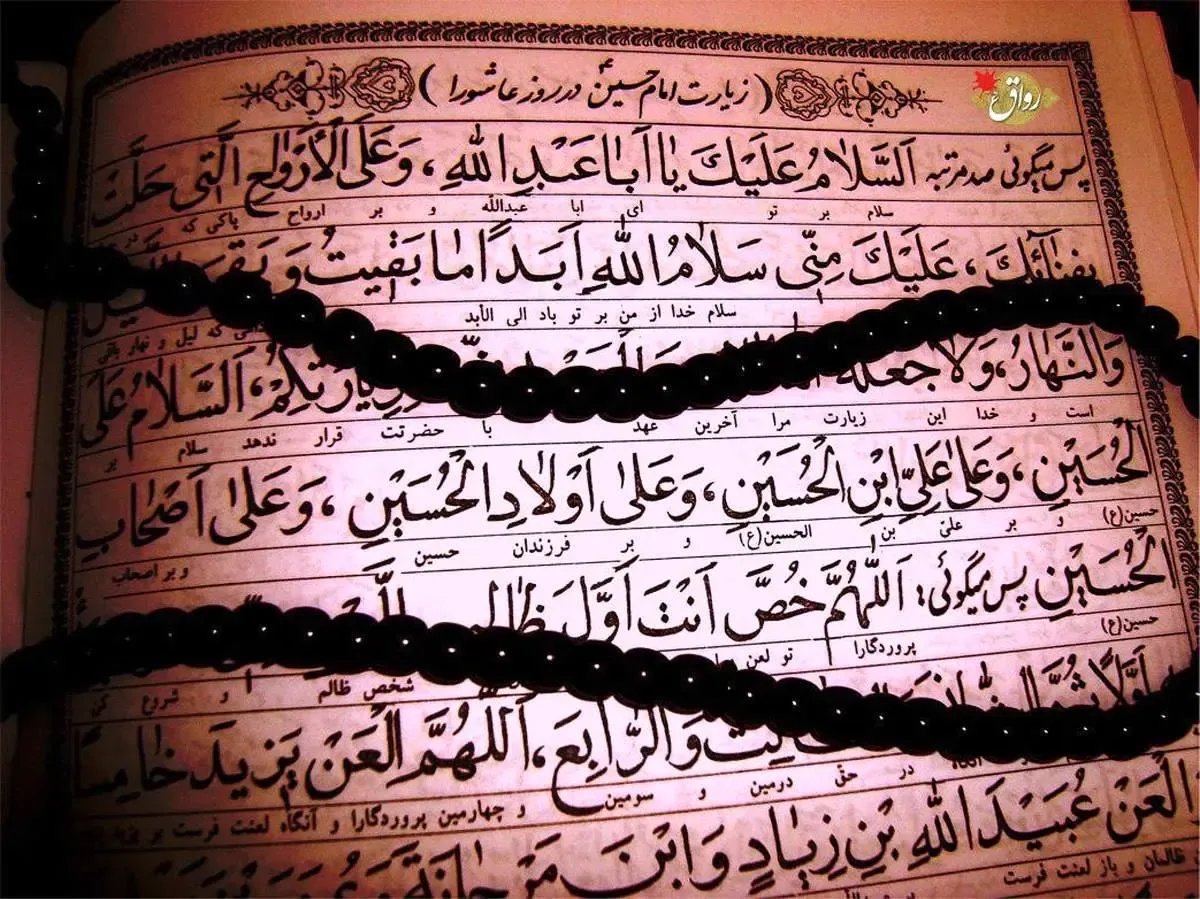 رواق ع
( زیارت امام حسینؑ در روز عاشورا )
پس میگوئی صد مرتبه اَلسَّلامُ عَلَیْكَ یا اَبا عَبْدِ اللهِ ، وَعَلَی الْاَرْواحِ الَّتی حَلَّتْ
سلام بر تو ای ابا عبدالله و بر ارواح پاکی که در
بِفِنآئِكَ ، عَلَیْكَ مِنّی سَلامُ اللهِ اَبَدًا ما بَقیتُ وَ بَقِیَ
سلام خدا از من بر تو باد الی الأبد که لیل و نهار باقی
وَالنَّهارُ، وَلا جَعَلَهُ لِزِیارَتِکُمْ، اَلسَّلامُ عَلَی
است و خدا این زیارت مرا آخرین عهد با حضرتت قرار ندهد سلام بر
الْحُسَیْنِ ، وَعَلی عَلِیِّ ابْنِ الْحُسَیْنِ ، وَعَلی اَوْلادِ الْحُسَیْنِ ، وَعَلی اَصْحابِ
حسین(ع) و بر علیّ بن الحسین(ع) و بر فرزندان حسین و بر اصحاب
الْحُسَیْنِ پس میگوئی: اَللّهُمَّ خُصَّ اَنْتَ اَوَّلَ ظالِمٍ
حسین(ع) پروردگارا تو لعن
اَوَّلًا ثُمَّ
شخص ظالم و شروع کن
وَالرّابِعَ، اَللّهُمَّ الْعَنْ یَزیدَ خامِسًا
در حقّ دومین و سومین و چهارمین پروردگارا و آنگاه لعنت فرست بر
الْعَنْ عُبَیْدَ اللهِ بْنَ زِیادٍ وَابْنَ مَرْجانَةَ
ظالمان و باز لعنت فرست